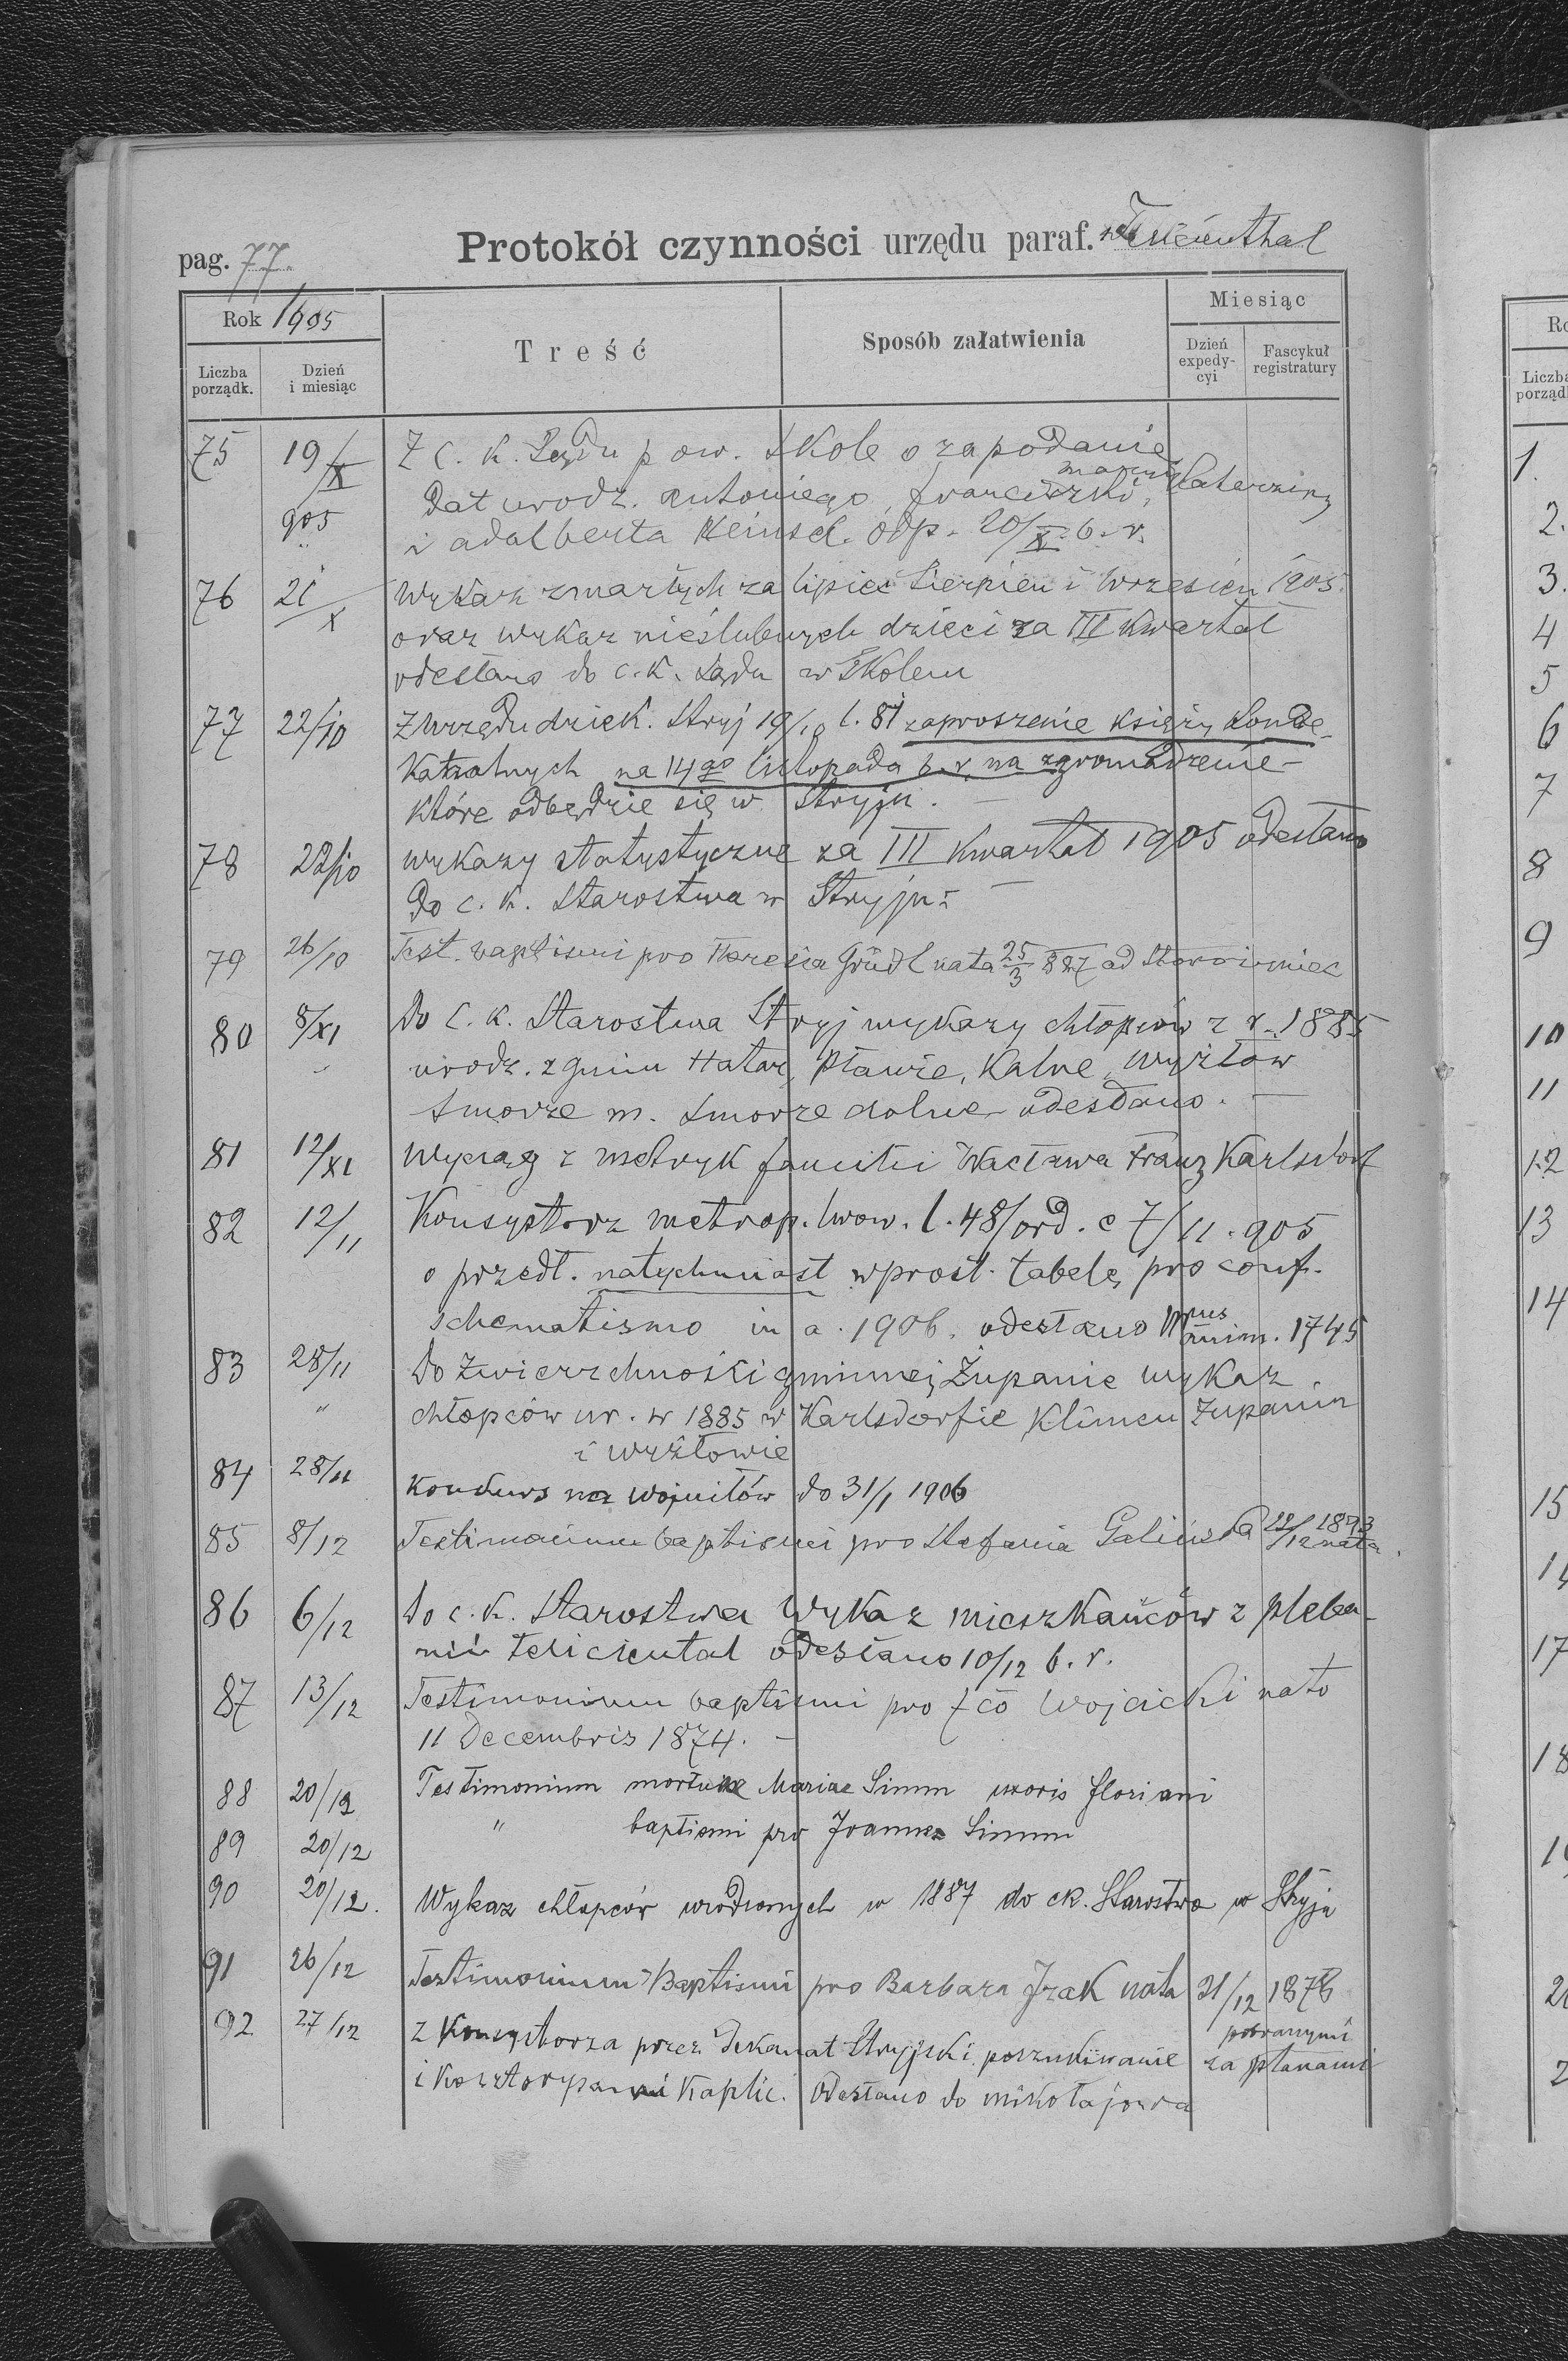 pag. 77
Protokół czynności urzędu paraf. w Felicienthal
Rok 1905
Treść
Sposób załatwienia
Miesiąc
Liczba porządk.
Dzień i miesiąc
Dzień expedy-cyi
Fascykuł registratury
75 19/X 905 Z c. k. Sądu pow. Skole o zapodanie
dat urodz. Antoniego, Franciszki, Maryi, Katarzyny
i Adalberta Heinsel. odp. 20/X b. r.
76 21/X Wykaz zmarłych za lipiec sierpień i wrzesień 1905.
oraz wykaz nieślubnych dzieci za III kwartał
odesłano do c. k. Sądu w Skolem
77 22/10 Z Urzędu dziek. Stryj 19/10 l. 81 zaproszenie księży kondekatralnych na 14go listopada b. r. na zgromadzenie
które odbędzie się w Stryju. —
78 22/10 wykazy statystyczne za III kwartał 1905 odesłano
do c. k. Starostwa w Stryju. —
79 26/10 Test. baptismi pro Theresia Gründl nata 25/3 887 ad
80 8/XI Do c. k. Starostwa Stryj wykazy chłopców z r. 1885
urodz. z gmin Hatar, Pławie, Kalne, Wyżłów
Smorze m. Smorze dolne odesłano. —
81 12/XI Wyciąg z metryk familii Wacława Franz Karlsdorf
82 12/11 Konsystorz metrop. lwow. l. 48/ord. e 7/11. 905
o przedł. natychmiast wprost. tabelę pro conf.
schematismo in a. 1906. odesłano 1745
83 28/11 Do Zwierzchności gminnej Żupanie wykaz
" chłopców ur. w 1885 w Karlsdorfie Klimcu Żupaniu
i Wyżłowie
84 28/11 Konkurs na Wojniłów do 31/1 1906
85 8/12 Testimonium baptismi pro Stefania Galińska 22/12 1893 nata.
86 6/12 Do c. k. Starostwa Wykaz mieszkańców z pleba-
nii Feliciental odesłano 10/12 b. r.
87 13/12 Testimonium baptismi pro Fco Wojcicki nato
11 Decembris 1874. —
88 20/12 Testimonium mortuae Mariae Simm uxoris Floriani
89 20/12 " baptismi pro Joannes Simm
90 20/12. Wykaz chłopców urodzonych w 1887 do ck. Starostwa w Stryju
91 26/12 Testimonium Baptismi pro Barbara Jzak nata 21/12 1878
92 27/12 Z Konsystorza przez Dekanat Stryjski poszukiwanie za pobranymi planami
i kosztorysami kaplic. Odesłano do Mikołajowa
Liczba
1.
2.
3.
4
5
6
7
8
9
10
11
12
13
14
15
17